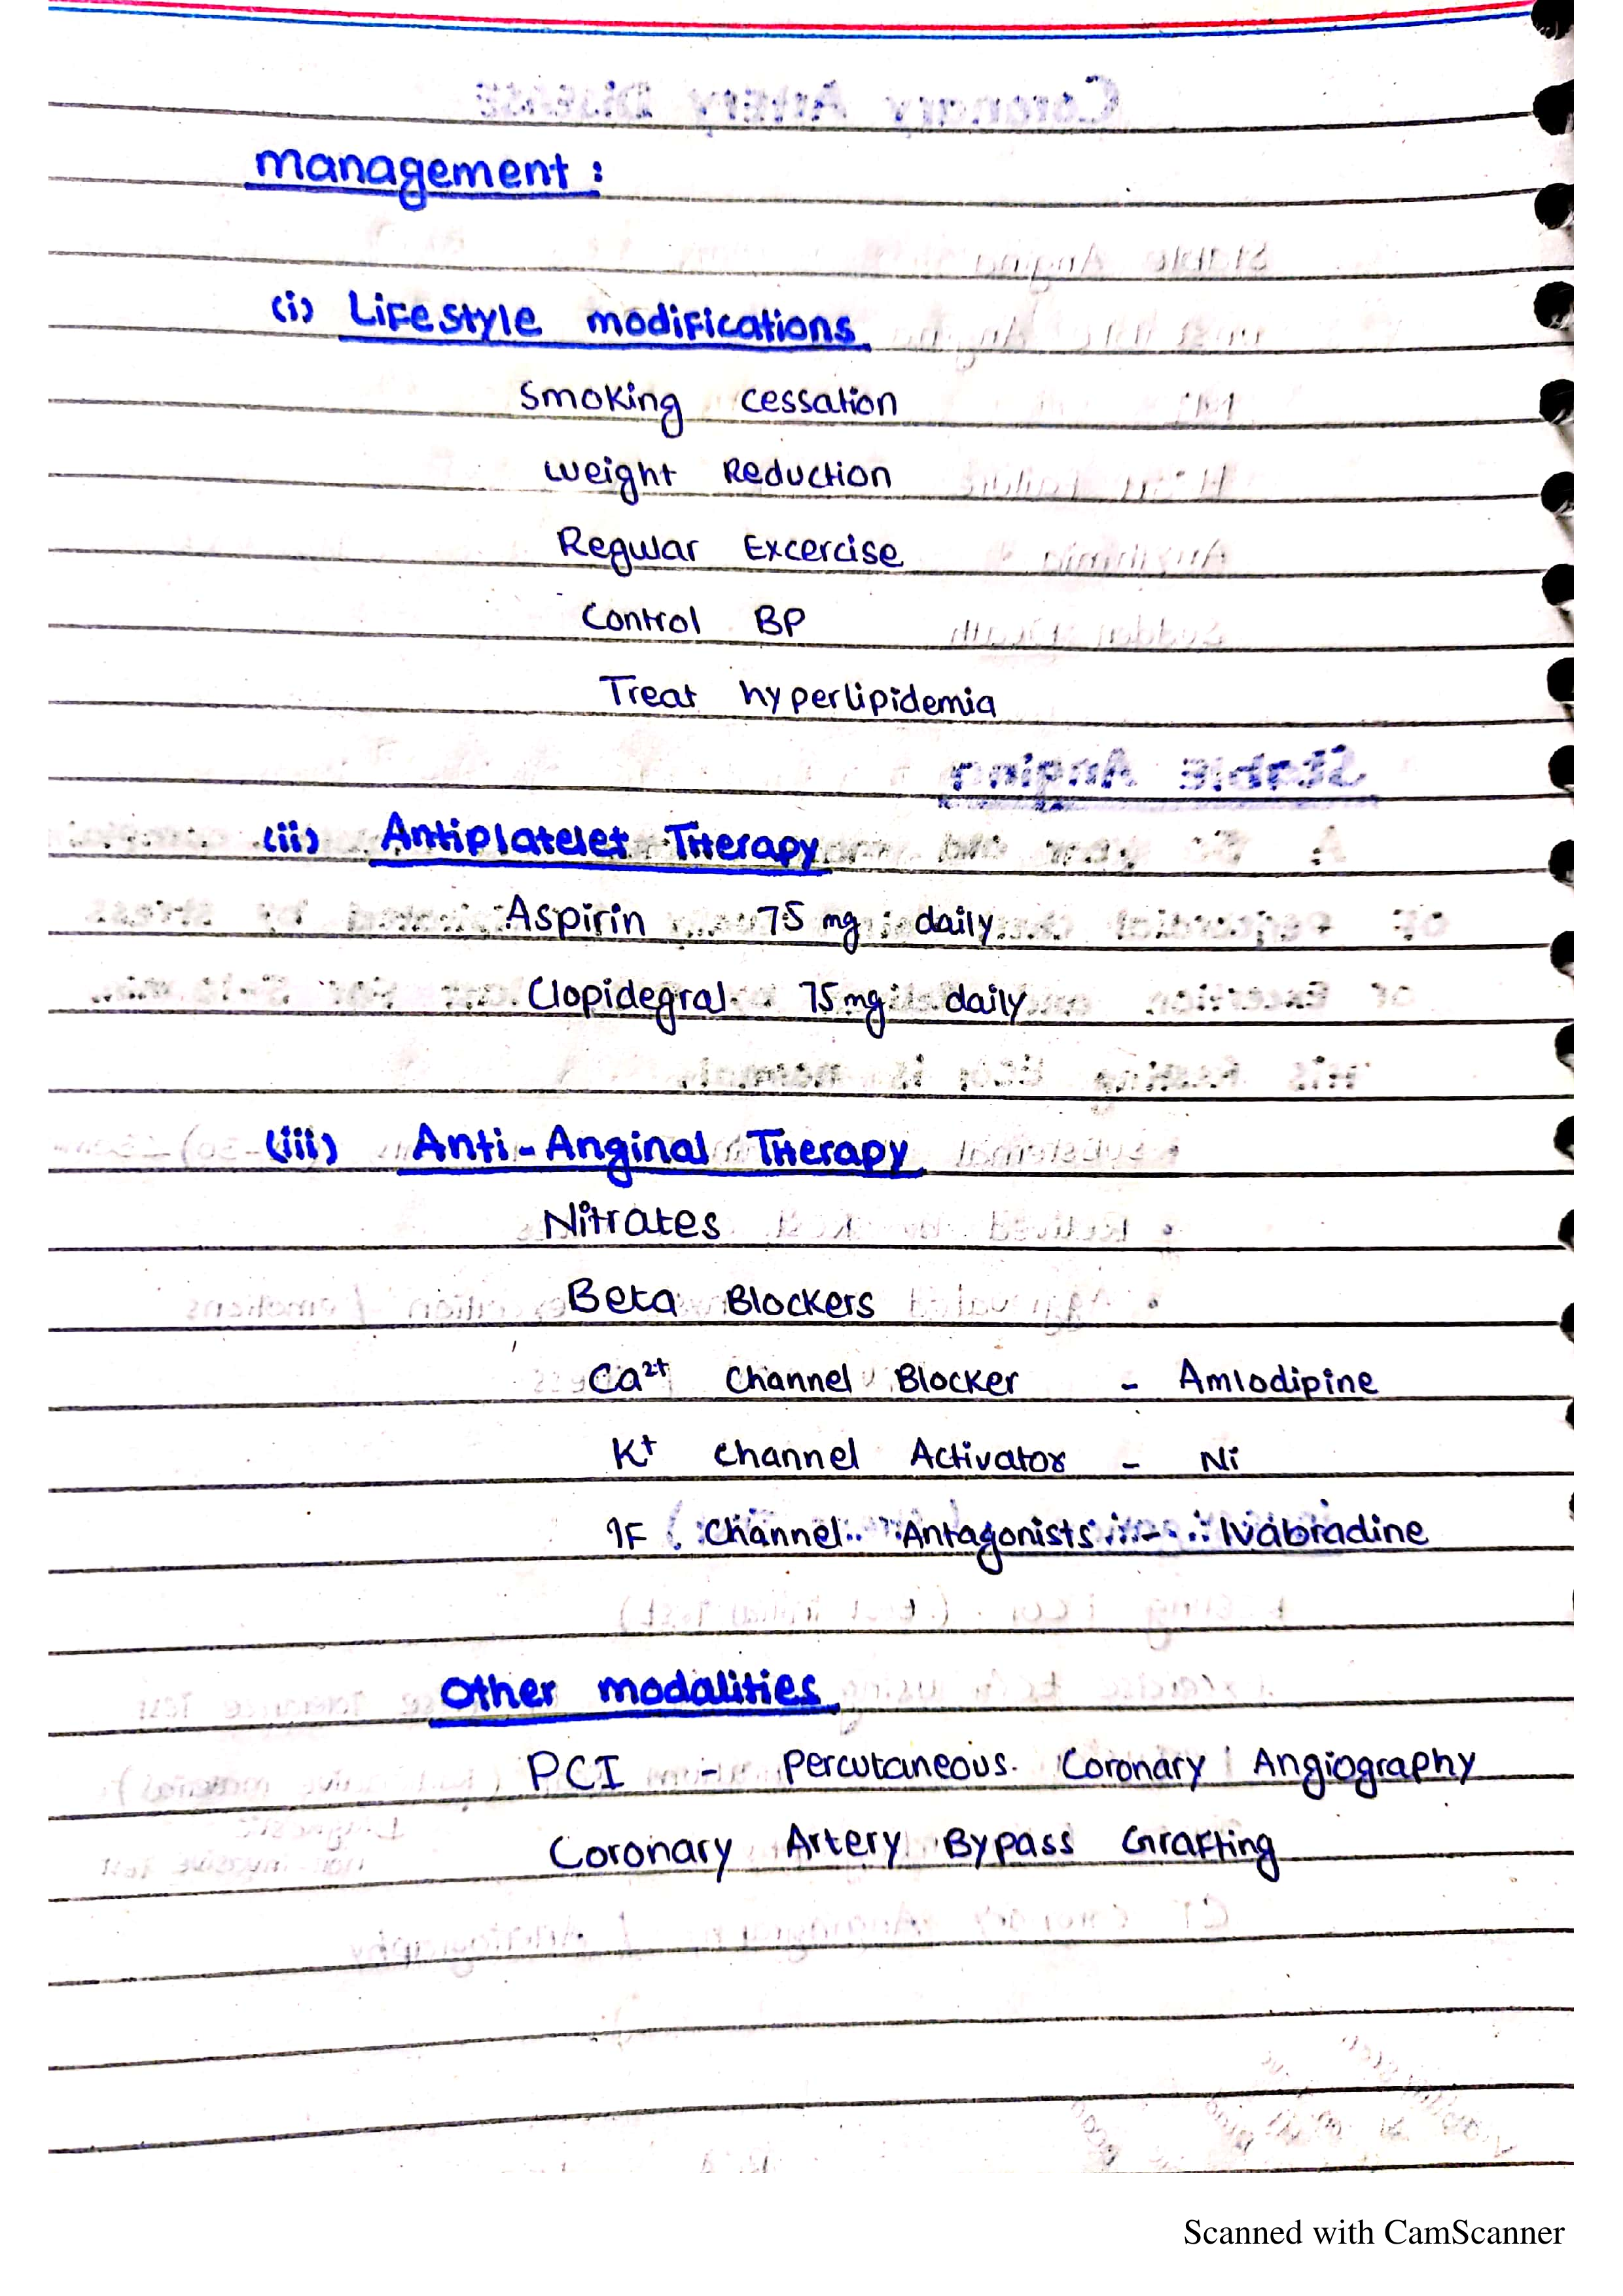 management :
(i) Lifestyle modifications
Smoking cessation
weight Reduction
Regular Excercise
Control BP
Treat hyperlipidemia
(ii) Antiplatelet Therapy
Aspirin 75 mg daily
Clopidegral 75 mg daily
(iii) Anti-Anginal Therapy
Nitrates
Beta Blockers
Ca²⁺ Channel Blocker - Amlodipine
K⁺ channel Activator - Ni
IF Channel Antagonists - Ivabradine
Other modalities
PCI - Percutaneous Coronary Angiography
Coronary Artery Bypass Grafting
Scanned with CamScanner